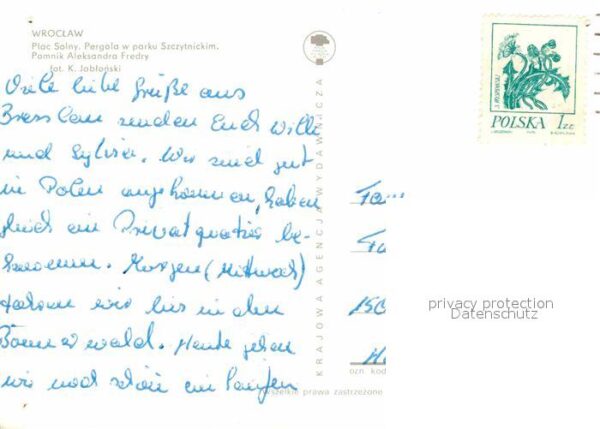 WROCŁAW
Plac Solny. Pergola w parku Szczytnickim.
Pomnik Aleksandra Fredry
fot. K. Jabłoński
Viele liebe Grüße aus
Breslau senden Euch Willi
und Sylvia. Wir sind gut
in Polen angekommen, haben
gleich ein Privatquartier be-
kommen. Morgen (Mittwoch)
fahren wir bis in den
Böhmerwald. Heute gehen
wir noch schön ein
KRAJOWA AGENCJA WYDAWNICZA
POLSKA 1 ZŁ
Fa
150
ozn. kod
wszelkie prawa zastrzeżone
privacy protection
Datenschutz